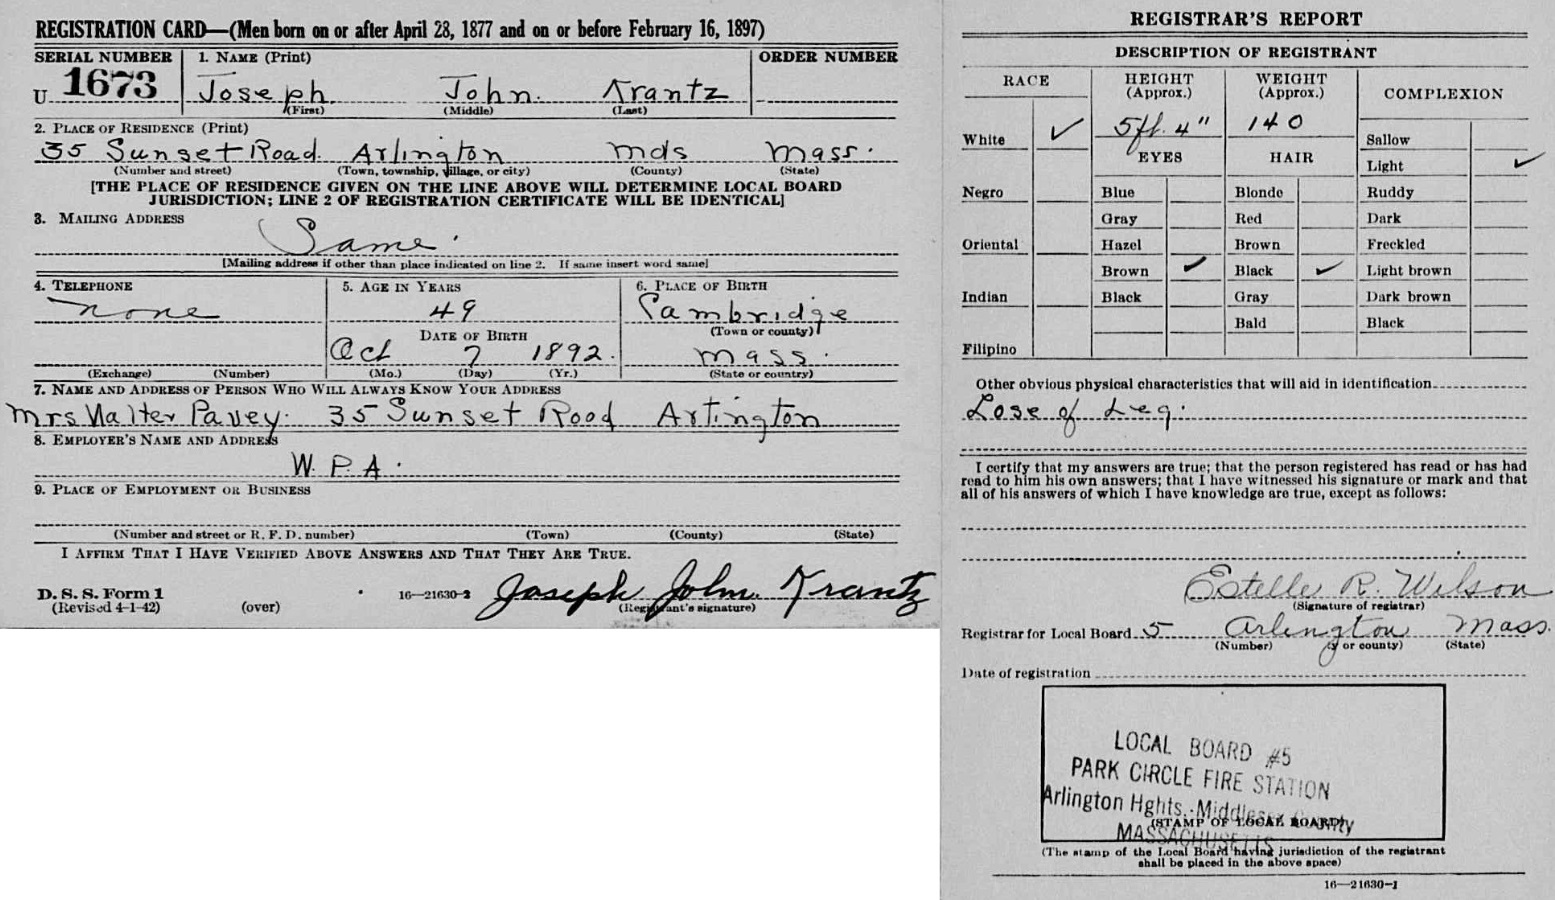 REGISTRATION CARD—(Men born on or after April 28, 1877 and on or before February 16, 1897)
SERIAL NUMBER 1. NAME (Print) ORDER NUMBER
U 1673 Joseph John. Krantz
(First) (Middle) (Last)
2. PLACE OF RESIDENCE (Print)
35 Sunset Road. Arlington Mds Mass.
(Number and street) (Town, township, village, or city) (County) (State)
[THE PLACE OF RESIDENCE GIVEN ON THE LINE ABOVE WILL DETERMINE LOCAL BOARD
JURISDICTION; LINE 2 OF REGISTRATION CERTIFICATE WILL BE IDENTICAL]
3. MAILING ADDRESS
Same.
[Mailing address if other than place indicated on line 2. If same insert word same]
4. TELEPHONE 5. AGE IN YEARS 6. PLACE OF BIRTH
none 49 Cambridge
DATE OF BIRTH (Town or county)
Oct 7 1892. Mass.
(Exchange) (Number) (Mo.) (Day) (Yr.) (State or country)
7. NAME AND ADDRESS OF PERSON WHO WILL ALWAYS KNOW YOUR ADDRESS
Mrs Walter Pavey. 35 Sunset Road Arlington
8. EMPLOYER'S NAME AND ADDRESS
W. P. A.
9. PLACE OF EMPLOYMENT OR BUSINESS
(Number and street or R. F. D. number) (Town) (County) (State)
I AFFIRM THAT I HAVE VERIFIED ABOVE ANSWERS AND THAT THEY ARE TRUE.
D. S. S. Form 1
(Revised 4-1-42) (over) 16—21630-2 Joseph John. Krantz
(Registrant's signature)
REGISTRAR'S REPORT
DESCRIPTION OF REGISTRANT
RACE HEIGHT (Approx.) WEIGHT (Approx.) COMPLEXION
White ✓ 5 ft. 4" 140 Sallow
EYES HAIR Light ✓
Negro Blue Blonde Ruddy
Gray Red Dark
Oriental Hazel Brown Freckled
Brown ✓ Black ✓ Light brown
Indian Black Gray Dark brown
Bald Black
Filipino
Other obvious physical characteristics that will aid in identification
Lose of Leg.
I certify that my answers are true; that the person registered has read or has had
read to him his own answers; that I have witnessed his signature or mark and that
all of his answers of which I have knowledge are true, except as follows:
Estelle R. Wilson
(Signature of registrar)
Registrar for Local Board 5 Arlington Mass.
(Number) (City or county) (State)
Date of registration
LOCAL BOARD #5
PARK CIRCLE FIRE STATION
Arlington Hghts. Middlesex County
(STAMP OF LOCAL BOARD)
MASSACHUSETTS
(The stamp of the Local Board having jurisdiction of the registrant
shall be placed in the above space)
16—21630-1